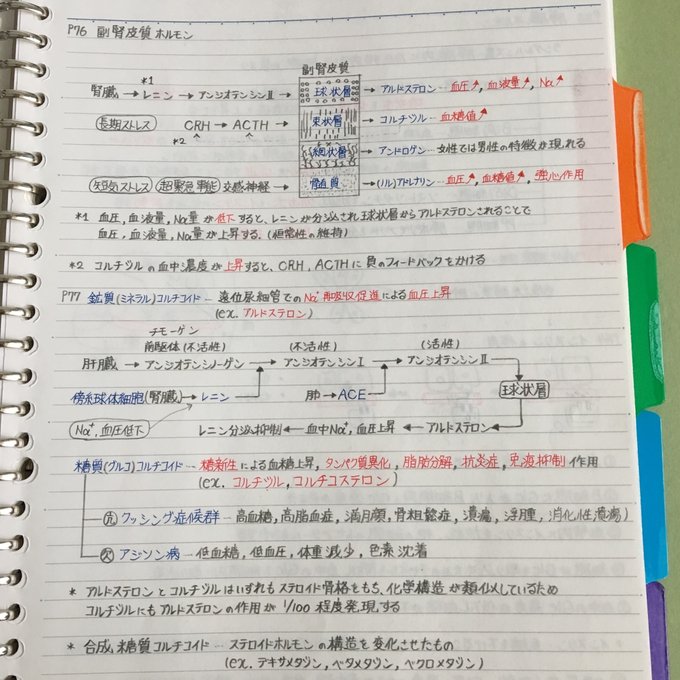 P76 副腎皮質ホルモン
副腎皮質
*1
腎臓 → レニン → アンジオテンシンⅡ → 球状層 → アルドステロン…血圧↗, 血液量↗, Na↗
長期ストレス CRH → ACTH → 束状層 → コルチゾル…血糖値↗
*2
網状層 → アンドロゲン…女性では男性の特徴が現れる
短期ストレス 超緊急事態 交感神経 → 髄質 → (ノル)アドレナリン…血圧↗, 血糖値↗, 強心作用
*1 血圧, 血液量, Na量が低下すると、レニンが分泌され球状層からアルドステロンされることで
血圧, 血液量, Na量が上昇する. (恒常性の維持)
*2 コルチゾルの血中濃度が上昇すると、CRH, ACTHに負のフィードバックをかける
P77 鉱質(ミネラル)コルチコイド… 遠位尿細管でのNa⁺再吸収促進による血圧上昇
(ex. アルドステロン)
チモーゲン
前駆体(不活性) (不活性) (活性)
肝臓 → アンジオテンシノーゲン → アンジオテンシンⅠ → アンジオテンシンⅡ
傍糸球体細胞(腎臓) → レニン 肺 → ACE 球状層
Na⁺, 血圧低下 レニン分泌抑制 ← 血中Na⁺, 血圧上昇 ← アルドステロン
糖質(グルコ)コルチコイド… 糖新生による血糖上昇, タンパク質異化, 脂肪分解, 抗炎症, 免疫抑制作用
(ex. コルチゾル, コルチコステロン)
亢 クッシング症候群… 高血糖, 高脂血症, 満月顔, 骨粗鬆症, 潰瘍, 浮腫, 消化性潰瘍)
欠 アジソン病… 低血糖, 低血圧, 体重減少, 色素沈着
* アルドステロンとコルチゾルはいずれもステロイド骨格をもち、化学構造が類似しているため
コルチゾルにもアルドステロンの作用が 1/100 程度発現する
* 合成糖質コルチコイド… ステロイドホルモンの構造を変化させたもの
(ex. デキサメタゾン, ベタメタゾン, ベクロメタゾン)